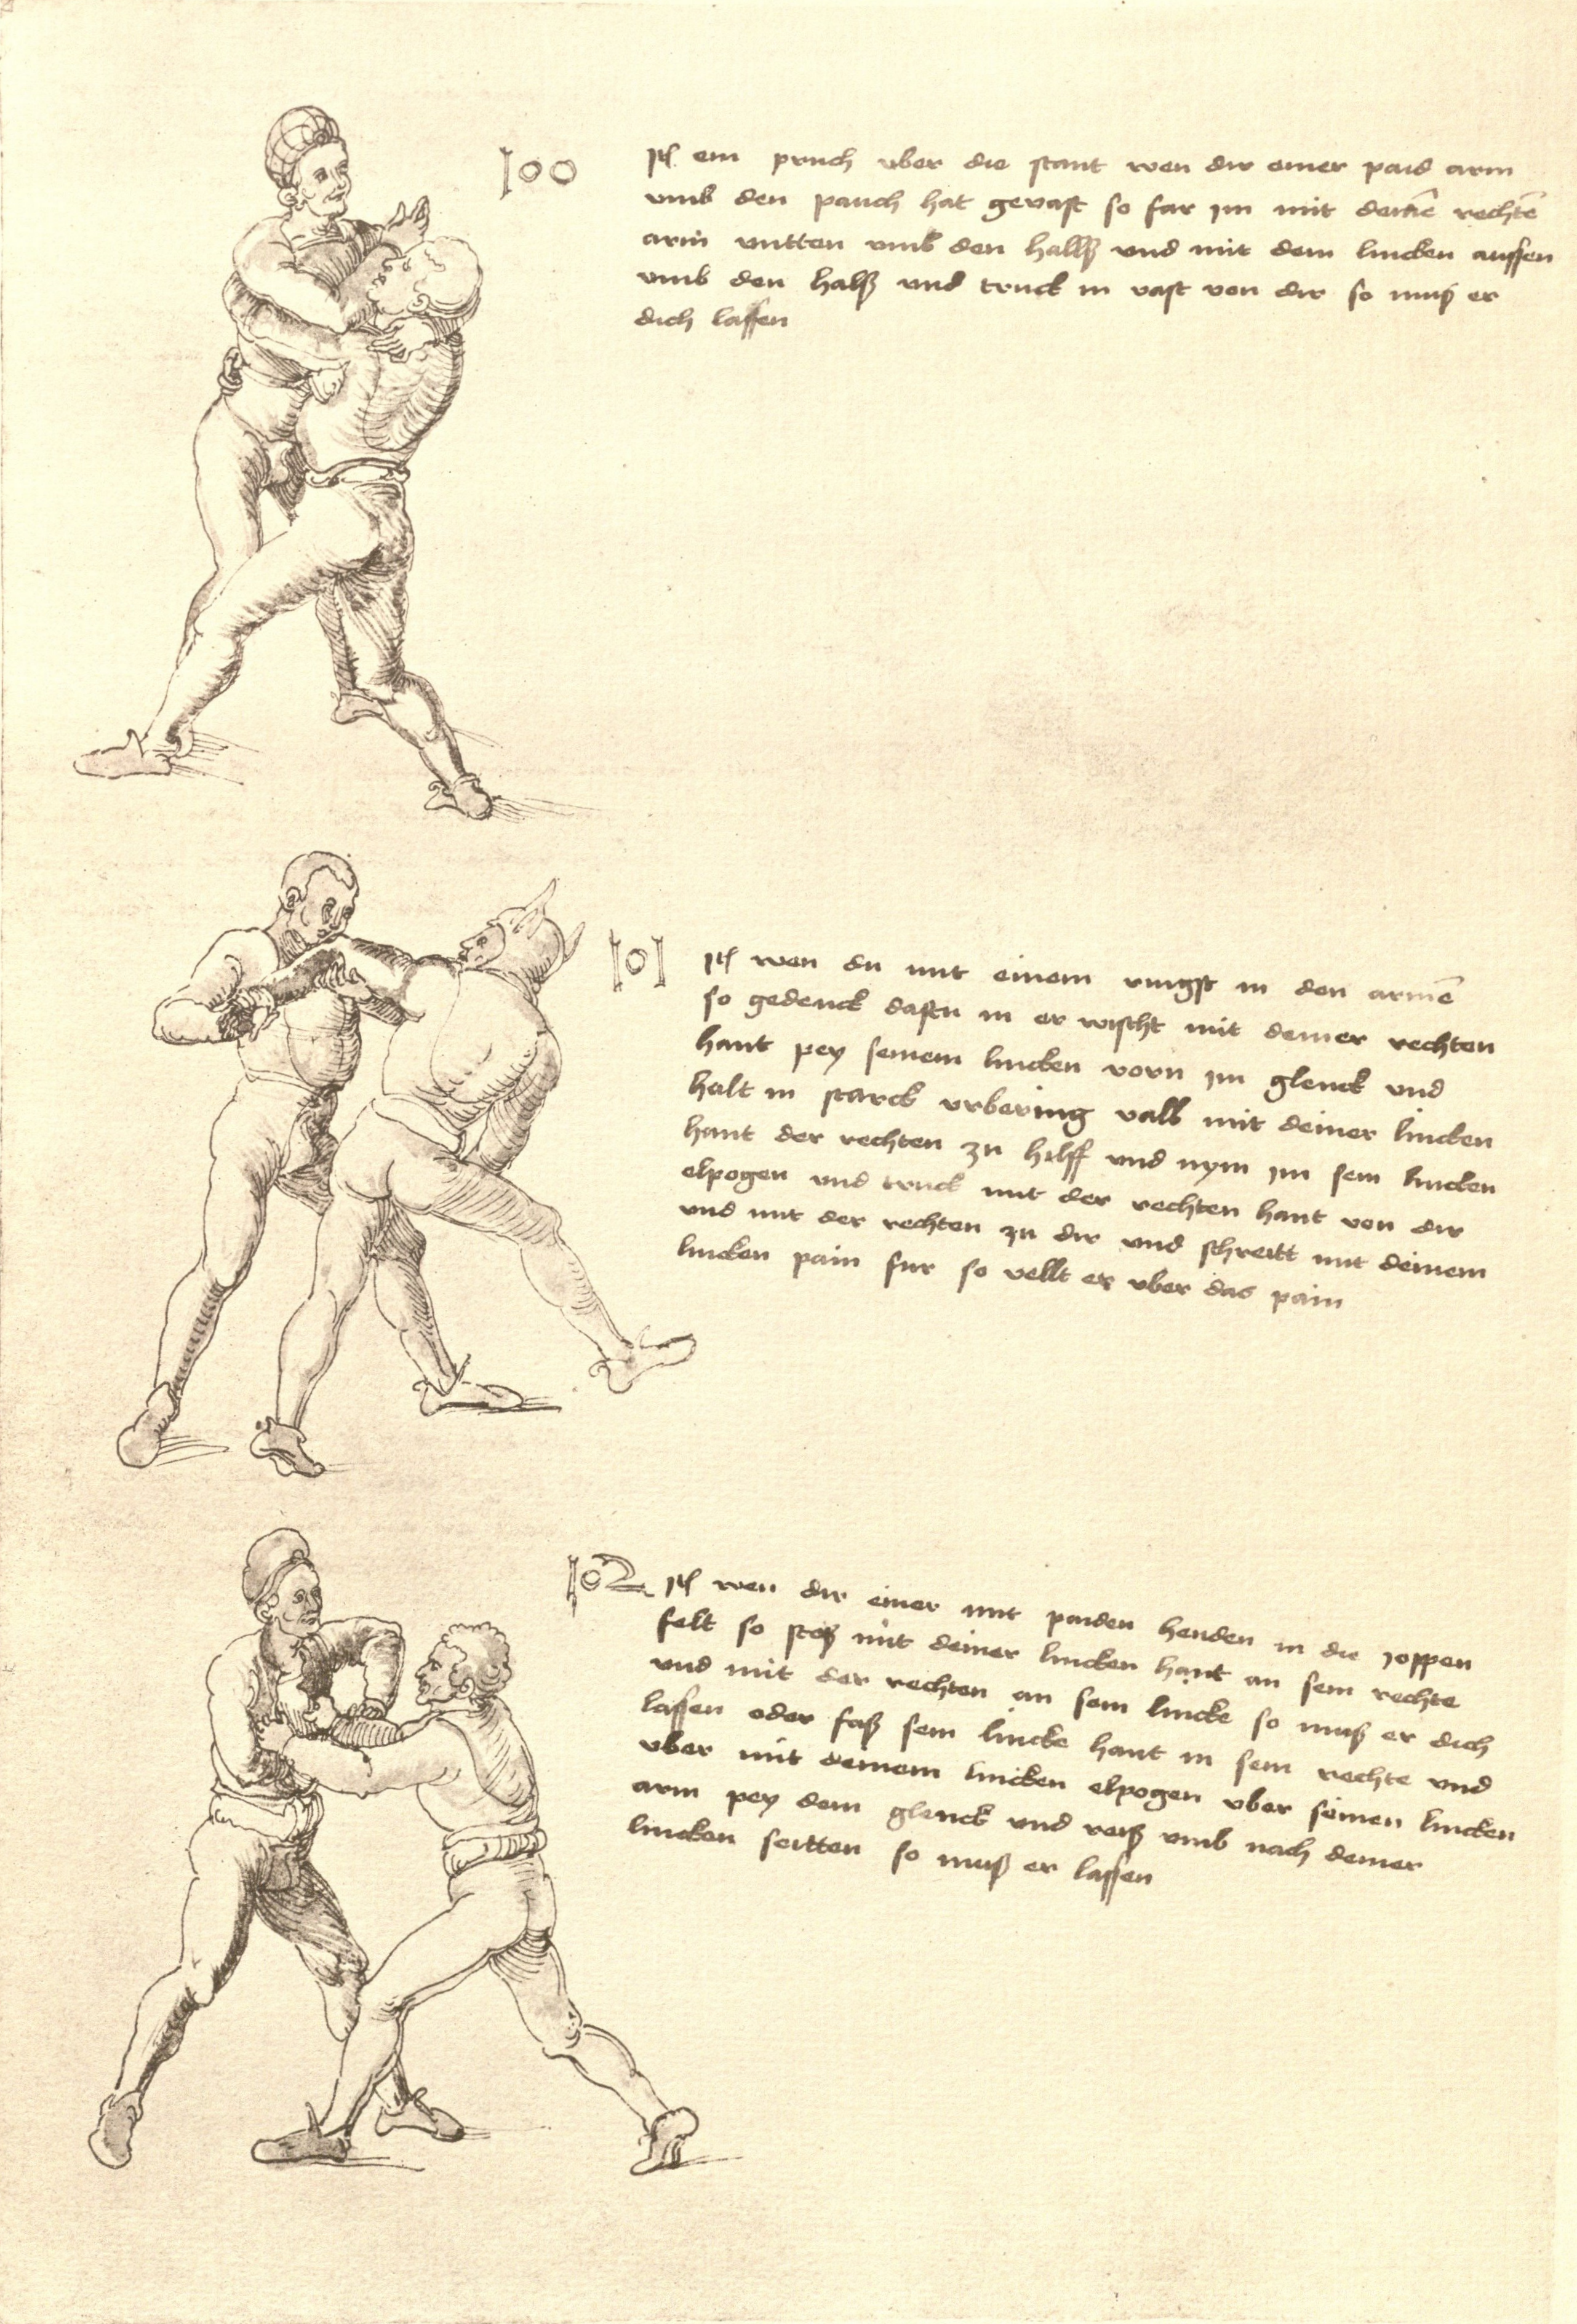 100
Itħ ein pruch vber die stant wen dir einer paid arm
vmb den pauch hat gevast so far im mit deinē rechtē
arm vntten vmb den hallß vnd mit dem lincken aussen
vmb den halß vnd truck in vast von dir so muß er
dich lassen
101
Itħ wen du mit einem ringst in den armē
so gedenck dastu in er wischt mit deiner rechten
hant pey seinem lincken vorn im glenck vnd
halt in starck vrbering vall mit deiner lincken
hant der rechten zu hilff vnd nym im sein lincken
elpogen vnd truck mit der rechten hant von dir
vnd mit der rechten zu dir vnd schreitt mit deinem
lincken pain fur so vellt er vber das pain
102
Itħ wen dir einer mit paiden henden in die joppen
felt so stoß mit deiner lincken hant an sein rechte
vnd mit der rechten an sein lincke so muß er dich
lassen oder faß sein lincke hant in sein rechte vnd
vber mit deinem lincken elpogen vber seinen lincken
arm pey dem glenck vnd reiß vmb nach deiner
lincken seitten so muß er lassen